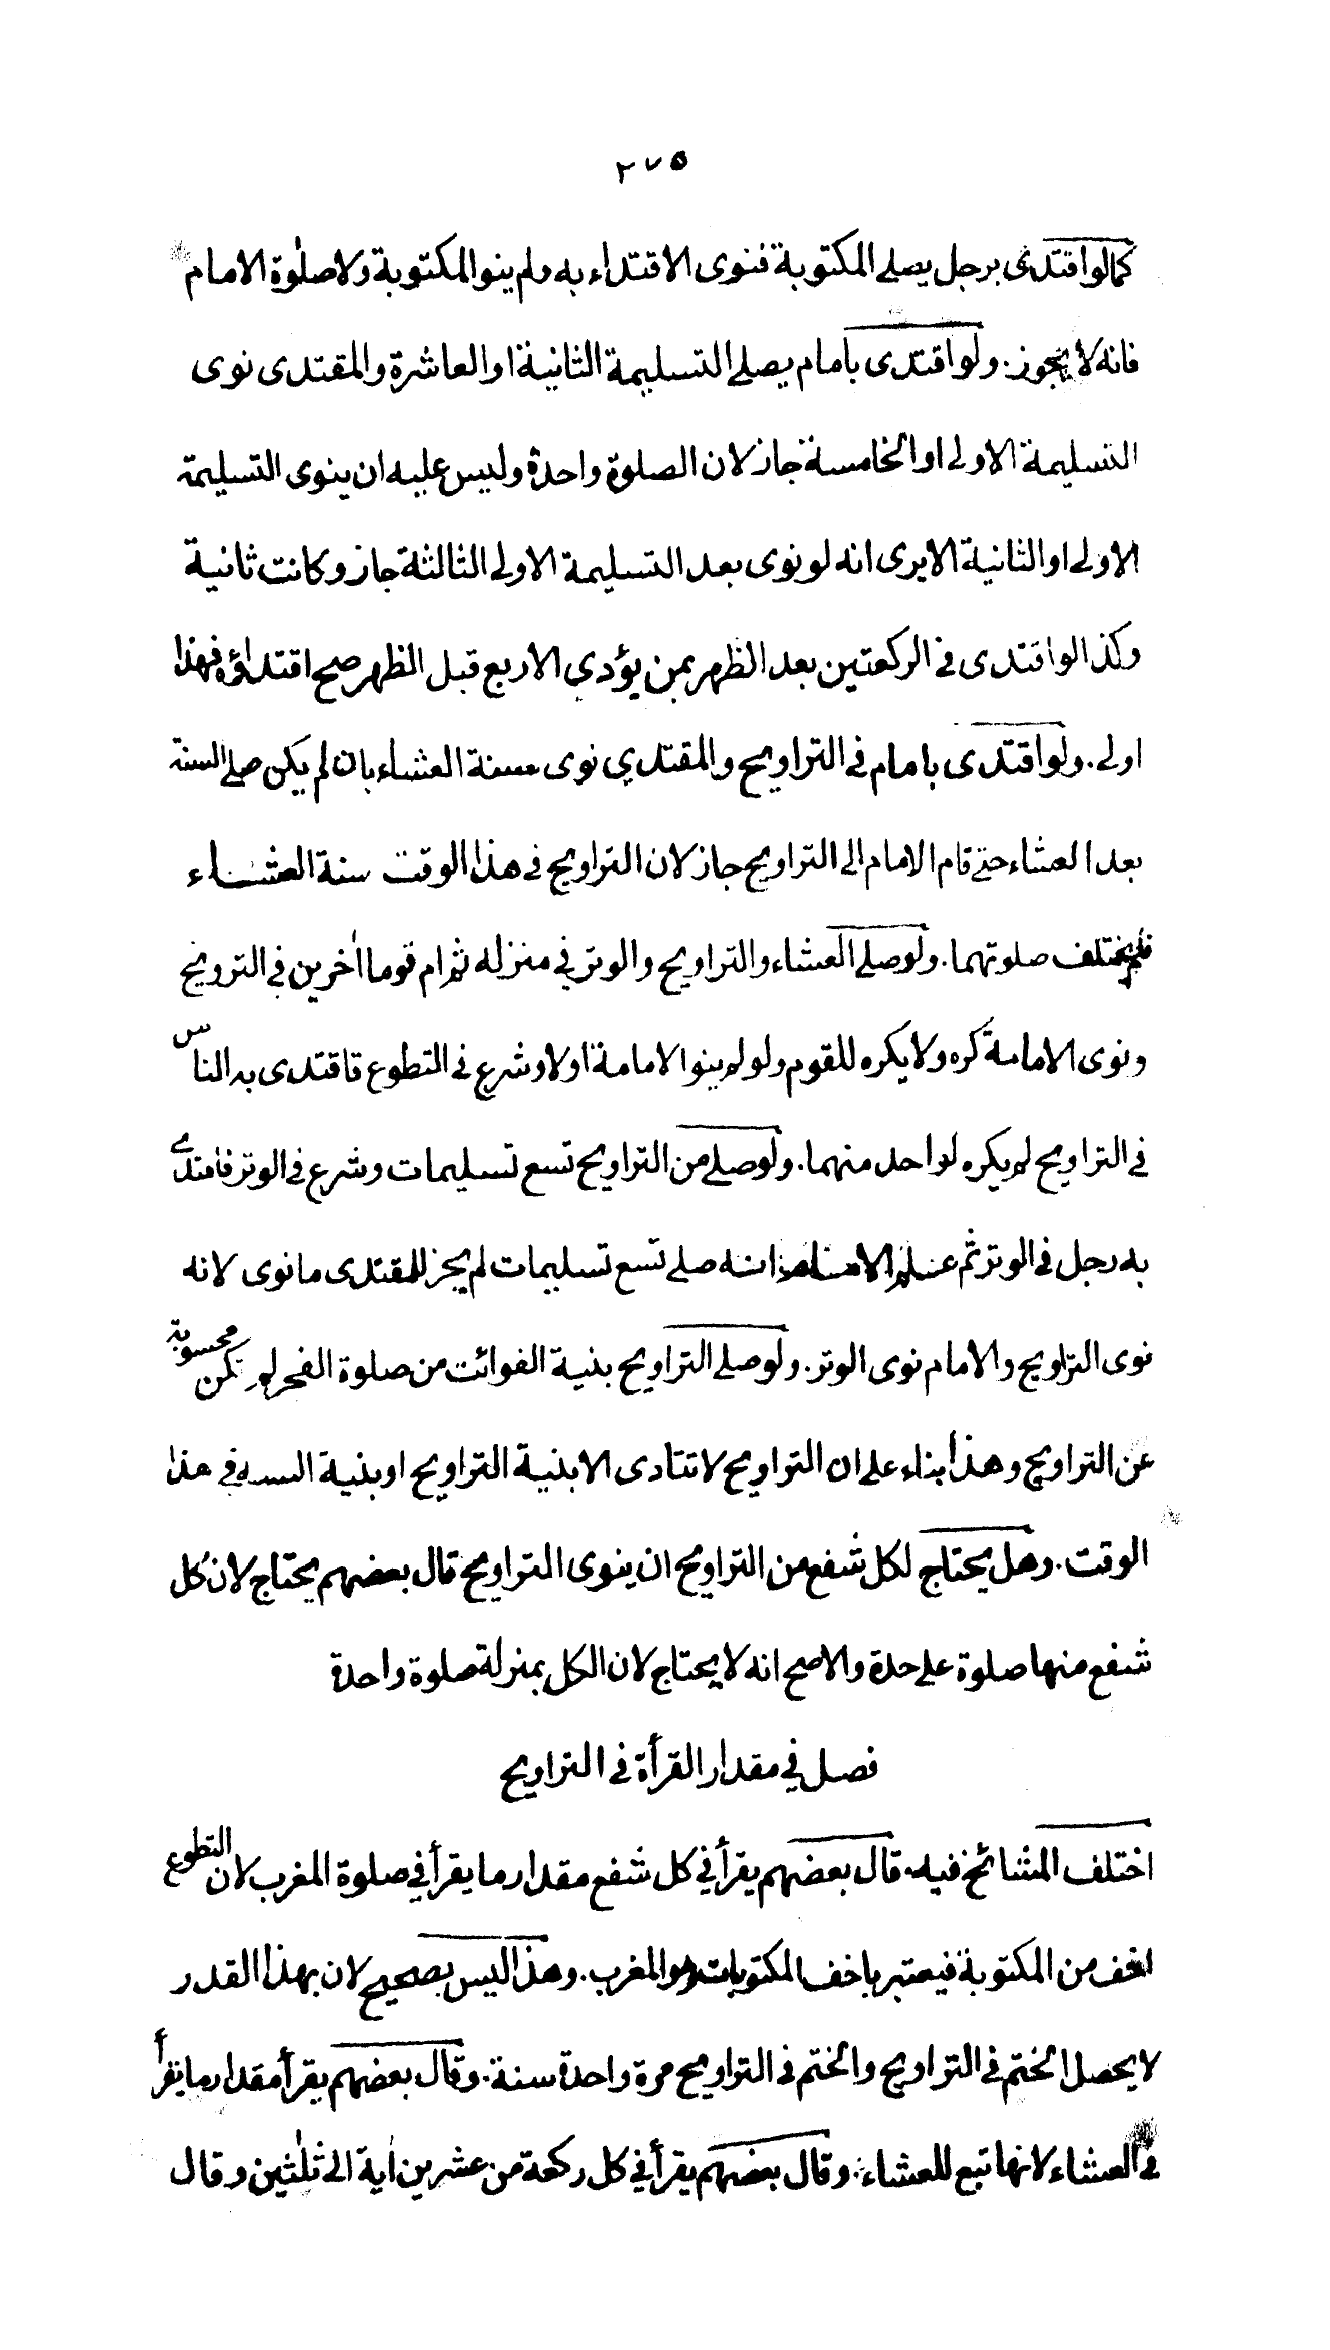 ٢٧٥
كمالو اقتدى برجل يصلي المكتوبة فنوى الاقتداء به ولم ينو المكتوبة ولا صلوة الامام
فانه لا يجوز. ولو اقتدى بامام يصلي التسليمة الثانية او العاشرة والمقتدى نوى
التسليمة الاولى او الخامسة جاز لان الصلوة واحدة وليس عليه ان ينوى التسليمة
الاولى او الثانية الايرى انه لو نوى بعد التسليمة الاولى الثالثة جاز وكانت ثانية
وكذا لو اقتدى في الركعتين بعد الظهر بمن يؤدي الاربع قبل الظهر صح اقتداؤه فهذا
اولى. ولو اقتدى بامام في التراويح والمقتدي نوى سنة العشاء بان لم يكن صلى السنة
بعد العشاء حتى قام الامام الى التراويح جاز لان التراويح في هذا الوقت سنة العشاء
فلم يختلف صلوتهما. ولو صلى العشاء والتراويح والوتر في منزله ثم ام قوما اٰخرين في الترويح
ونوى الامامة كره ولا يكره للقوم ولو لم ينو الامامة اولا وشرع في التطوع فاقتدى به الناس
في التراويح لم يكره لواحد منهما. ولو صلى من التراويح تسع تسليمات وشرع في الوتر فاقتدى
به رجل في الوتر ثم علم الامام انه صلى تسع تسليمات لم يجز للمقتدى ما نوى لانه
نوى التراويح والامام نوى الوتر. ولو صلى التراويح بنية الفوائت من صلوة الفجر لم تكن محسوبة
عن التراويح وهذا بناء على ان التراويح لا تتادى الا بنية التراويح او بنية السنة في هذا
الوقت. وهل يحتاج لكل شفع من التراويح ان ينوى التراويح قال بعضهم يحتاج لان كل
شفع منها صلوة على حدة والاصح انه لا يحتاج لان الكل بمنزلة صلوة واحدة
فصل في مقدار القرأة في التراويح
اختلف المشائخ فيه. قال بعضهم يقرأ في كل شفع مقدار ما يقرأ في صلوة المغرب لان التطوع
اخف من المكتوبة فيعتبر باخف المكتوبات وهو المغرب. وهذا ليس بصحيح لان بهذا القدر
لا يحصل الختم في التراويح والختم في التراويح مرة واحدة سنة. وقال بعضهم يقرأ مقدار ما يقرأ
في العشاء لانها تبع للعشاء. وقال بعضهم يقرأ في كل ركعة من عشرين اٰية الى ثلٰثين وقال